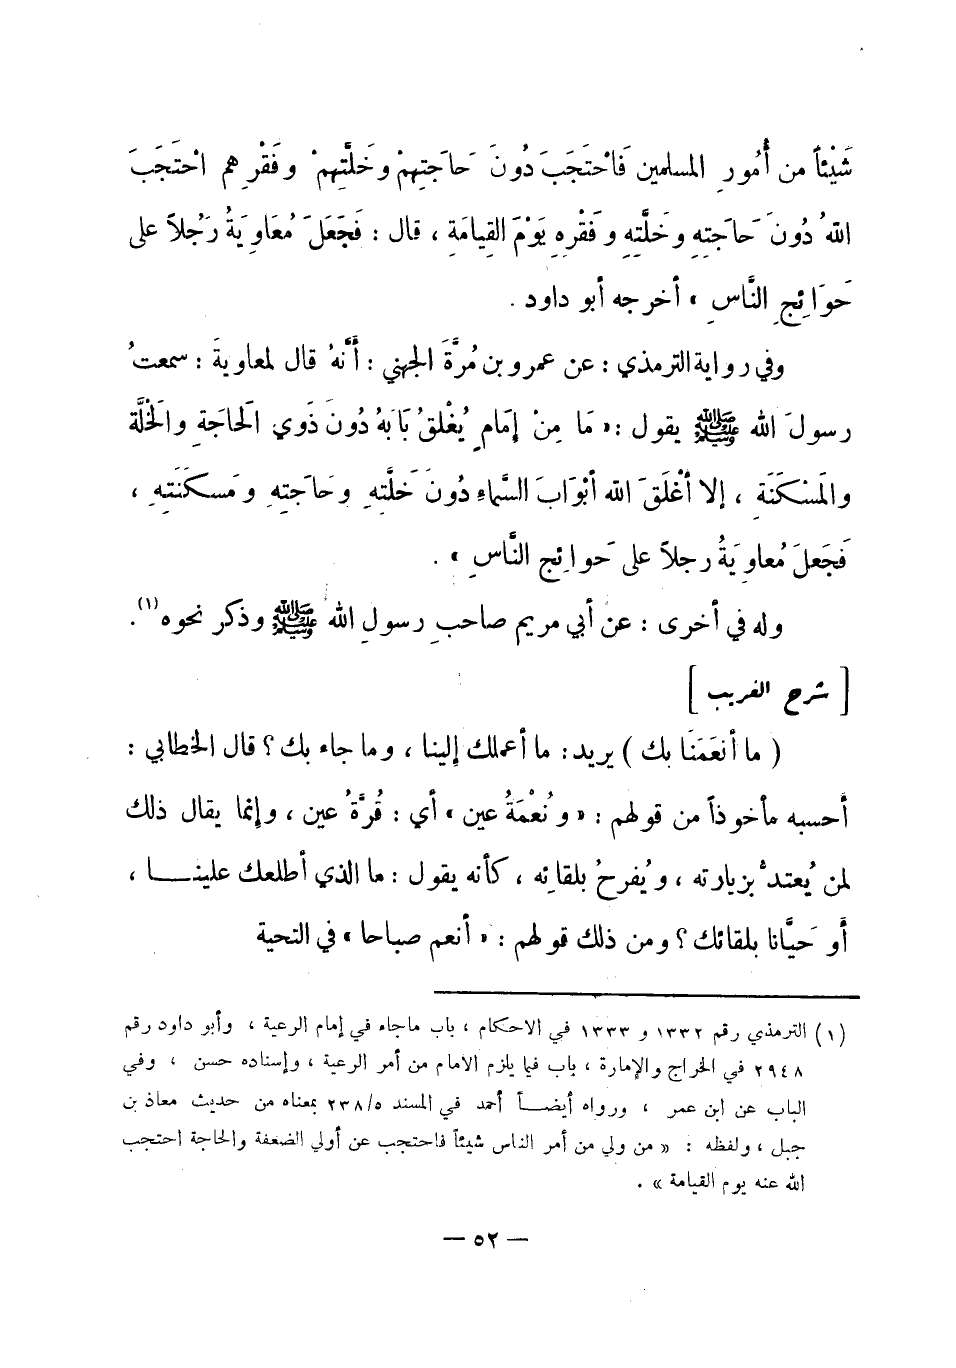 شَيْئاً من أُمُورِ المسلمين فَاحْتَجَبَ دُونَ حَاجَتِهِمْ وخَلَّتِهِمْ وفَقْرِهم احْتَجَبَ
اللهُ دُونَ حَاجَتِهِ وخَلَّتِهِ وفَقْرِهِ يَوْمَ القِيامَةِ ، قال : فَجَعَلَ مُعَاوِيَةُ رَجُلاً على
حَوَائِجِ النَّاسِ » أخرجه أبو داود .
وفي رواية الترمذي : عن عمرو بن مُرَّةَ الجهني : أَنَّهُ قال لمعاويةَ : سمعتُ
رسولَ الله ﷺ يقول : « مَا مِنْ إمَامٍ يُغْلقُ بَابَهُ دُونَ ذَوي الحَاجَةِ والخَلَّة
والمَسْكَنَةِ ، إلا أغْلَقَ الله أبْوَابَ السَّماءِ دُونَ خَلَّتِهِ وحَاجَتِهِ ومَسكَنَتِهِ ،
فَجَعلَ مُعاوِيَةُ رجلاً على حَوائِجِ النَّاسِ » .
وله في أخرى : عن أبي مريم صاحبِ رسولِ الله ﷺ وذكر نحوه (١) .
[ شرح الغريب ]
( ما أنعَمَنَا بك ) يريد : ما أعملك إلينا ، وما جاء بك ؟ قال الخطابي :
أحسبه مأخوذاً من قولهم : « ونُعْمَةُ عين » أي : قُرَّةُ عين ، وإنما يقال ذلك
لمن يُعتدُّ بزيارته ، ويُفرحُ بلقائه ، كأنه يقول : ما الذي أطلعك علينا ،
أو حَيَّانا بلقائك ؟ ومن ذلك قولهم : « أنعم صباحا » في التحية
(١) الترمذي رقم ١٣٣٢ و ١٣٣٣ في الاحكام ، باب ماجاء في إمام الرعية ، وأبو داود رقم
٢٩٤٨ في الخراج والإمارة ، باب فيما يلزم الامام من أمر الرعية ، وإسناده حسن ، وفي
الباب عن ابن عمر ، ورواه أيضاً أحمد في المسند ٢٣٨/٥ بمعناه من حديث معاذ بن
جبل ، ولفظه : « من ولي من أمر الناس شيئاً فاحتجب عن أولي الضعفة والحاجة احتجب
الله عنه يوم القيامة » .
— ٥٢ —